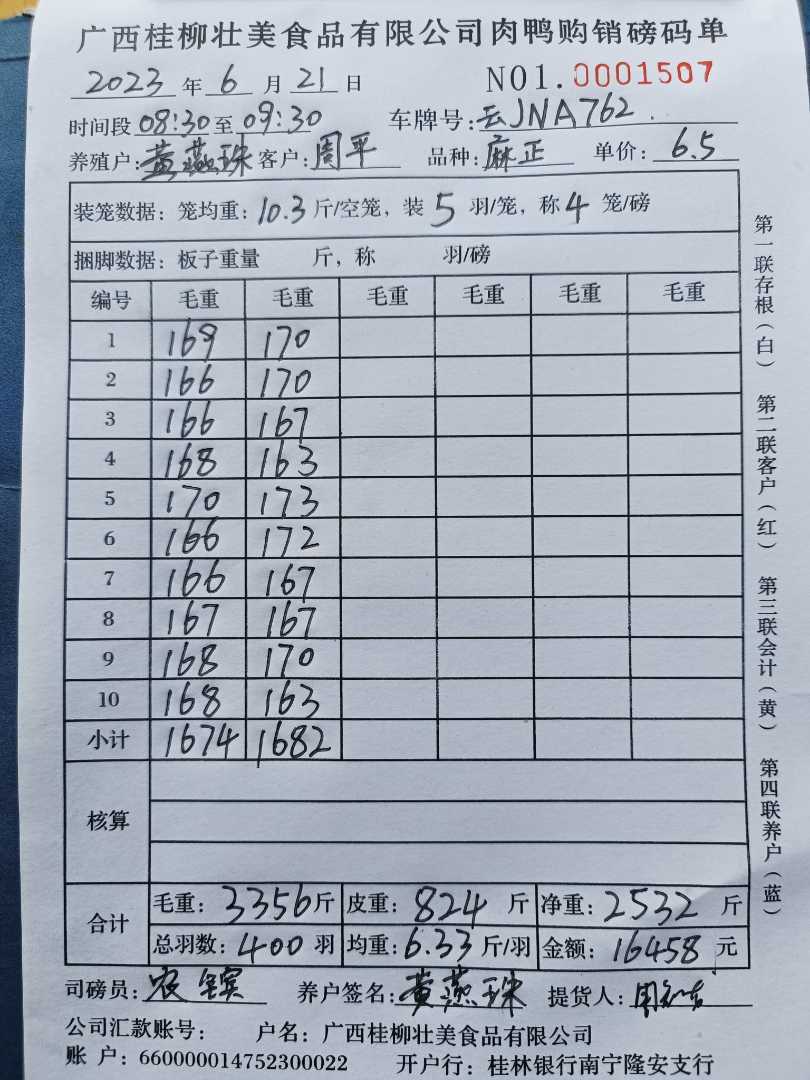 广西桂柳壮美食品有限公司肉鸭购销磅码单
2023 年 6 月 21 日 NO1.0001507
时间段 08:30 至 09:30 车牌号: 云JNA762
养殖户: 黄燕珠 客户: 周平 品种: 麻正 单价: 6.5
装笼数据: 笼均重: 10.3 斤/空笼, 装 5 羽/笼, 称 4 笼/磅
捆脚数据: 板子重量 斤, 称 羽/磅
编号 毛重 毛重 毛重 毛重 毛重 毛重
1 169 170
2 166 170
3 166 167
4 168 163
5 170 173
6 166 172
7 166 167
8 167 167
9 168 170
10 168 163
小计 1674 1682
核算
合计 毛重: 3356 斤 皮重: 824 斤 净重: 2532 斤
总羽数: 400 羽 均重: 6.33 斤/羽 金额: 16458 元
司磅员: 养户签名: 黄燕珠 提货人:
公司汇款账号: 户名: 广西桂柳壮美食品有限公司
账 户: 660000014752300022 开户行: 桂林银行南宁隆安支行
第一联存根(白) 第二联客户(红) 第三联会计(黄) 第四联养户(蓝)